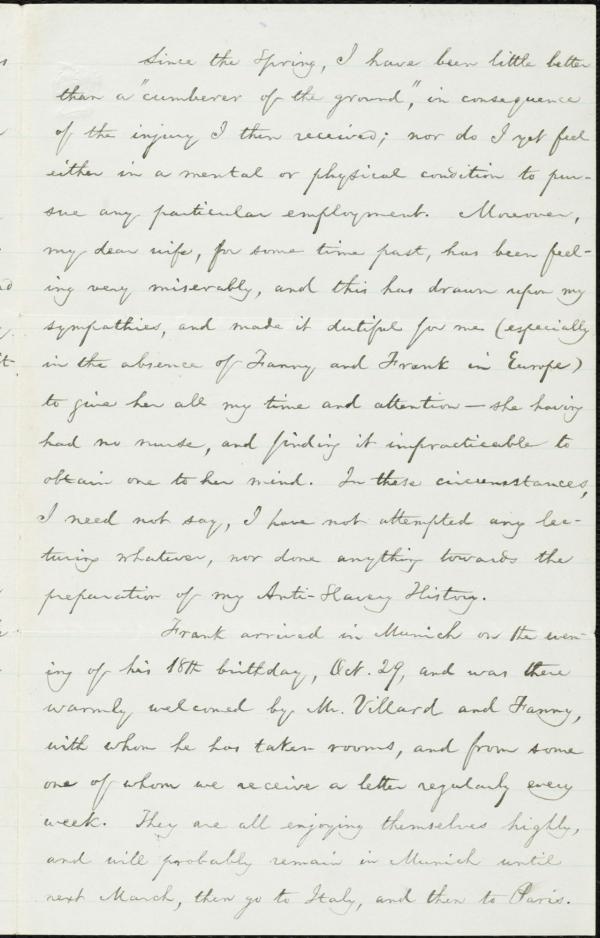 Since the Spring, I have been little better
than a "cumberer of the ground," in consequence
of the injury I then received; nor do I yet feel
either in a mental or physical condition to pur-
sue any particular employment. Moreover,
my dear wife, for some time past, has been feel-
ing very miserably, and this has drawn upon my
sympathies, and made it dutiful for me (especially
in the absence of Fanny and Frank in Europe)
to give her all my time and attention — she having
had no nurse, and finding it impracticable to
obtain one to her mind. In these circumstances,
I need not say, I have not attempted any lec-
turing whatever, nor done anything towards the
preparation of my Anti-Slavery History.
Frank arrived in Munich on the even-
ing of his 18th birthday, Oct. 29, and was there
warmly welcomed by Mr. Villard and Fanny,
with whom he has taken rooms, and from some
one of whom we receive a letter regularly every
week. They are all enjoying themselves highly,
and will probably remain in Munich until
next March, then go to Italy, and then to Paris.